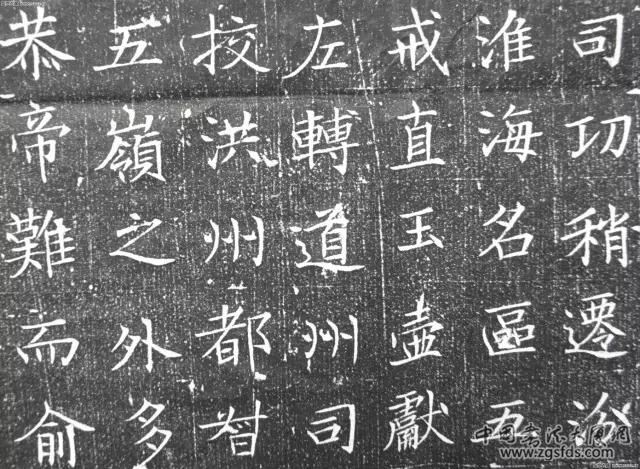 司功稍遷
淮海名區五
戒直玉壺獻
左轉道州司
挍洪州都督
五嶺之外多
恭帝難而俞
www.zgsfds.com